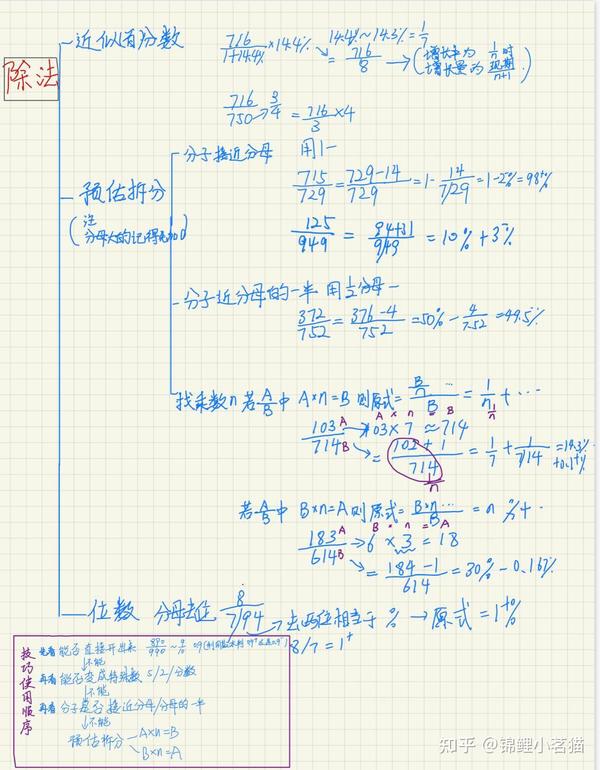 除法
近似百分数
716/(1+14.4%) ×14.4%
14.4%~14.3%=1/7
=716/8 → (增长率为1/n时
增长量为现期/(n+1))
716/750 → 3/4 = 716/3 ×4
预估拆分
(注
分子接近分母 用1-
715/729 = (729-14)/729 = 1 - 14/729 = 1-2%=98⁺%
125/949 = (94+31)/949 = 10% + 3⁺%
分子近分母的一半 用1/2分母-
372/752 = (376-4)/752 = 50% - 4/752 = 49.5%
找乘数n 若A/B中 A×n=B 则原式= (B/n ...)/B = 1/n + ...
A × n = B
103/714 → 103×7≈714
A
B
= (102+1)/714 = 1/7 + 1/714 = 14.3%
+0.1⁺%
1/n
若A/B中 B×n=A 则原式= (B×n...)/B = n % + ·
B × n = A
183/614 → 6 × 3 = 18
A
B
= (184-1)/614 = 30% - 0.16%
位数 分母去位 8/7/94 → 去两位相当于% → 原式=1⁺%
8/7=1⁺
技巧使用顺序
先看 能否直接开出来 890/990 = 9/10
↓不能
再看 能否变成特殊数 5/2/分数
↓不能
再看 分子是否接近分母/分母的一半
↓不能
预估拆分 A×n=B
B×n=A
知乎 @锦鲤小茗猫